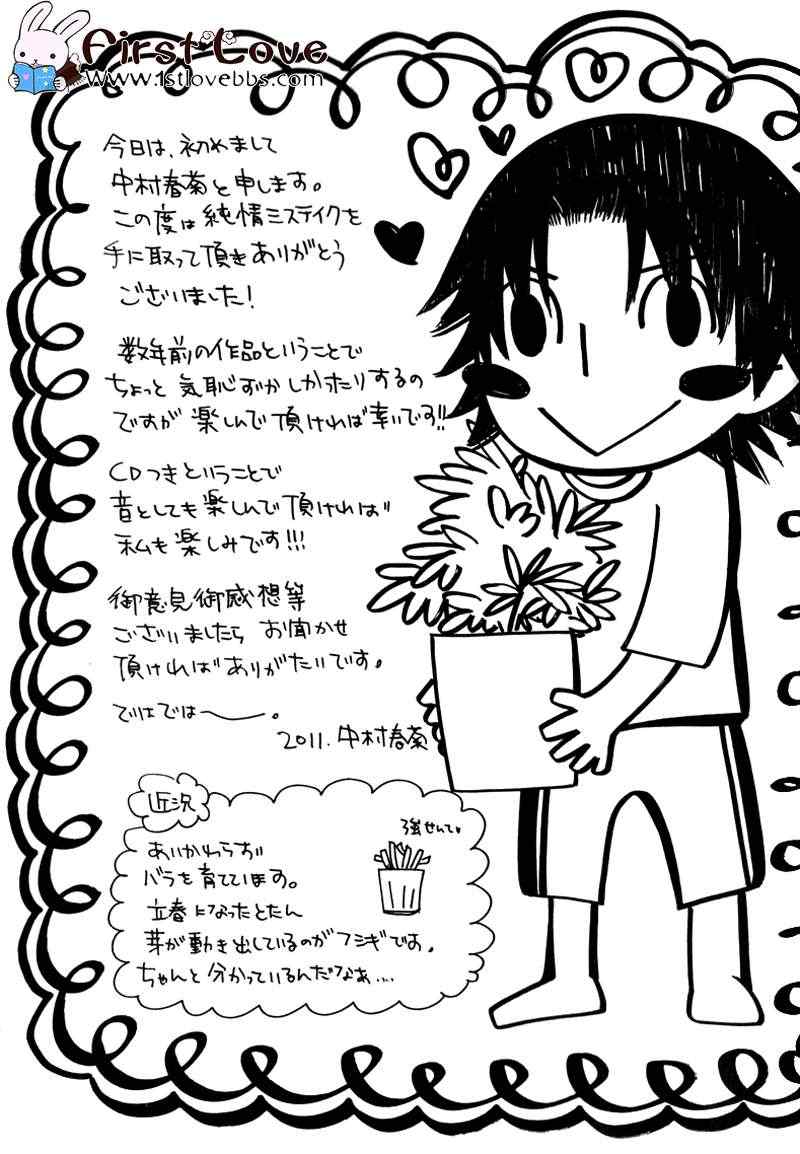 First Love
www.1stlovebbs.com
今日は、初めまして
中村春菊と申します。
この度は純情ミステイクを
手に取って頂きありがとう
ございました！
数年前の作品ということで
ちょっと気恥ずかしかったりするの
ですが楽しんで頂ければ幸いです!!
CDつきということで
音としても楽しんで頂ければ
私も楽しみです!!!
御意見御感想等
ございましたらお聞かせ
頂ければありがたいです。
ではでは〜。
2011.中村春菊
近況
強せんてい
あいかわらず
バラを育てています。
立春になったとたん
芽が動き出しているのがフシギです。
ちゃんと分かっているんだなぁ....